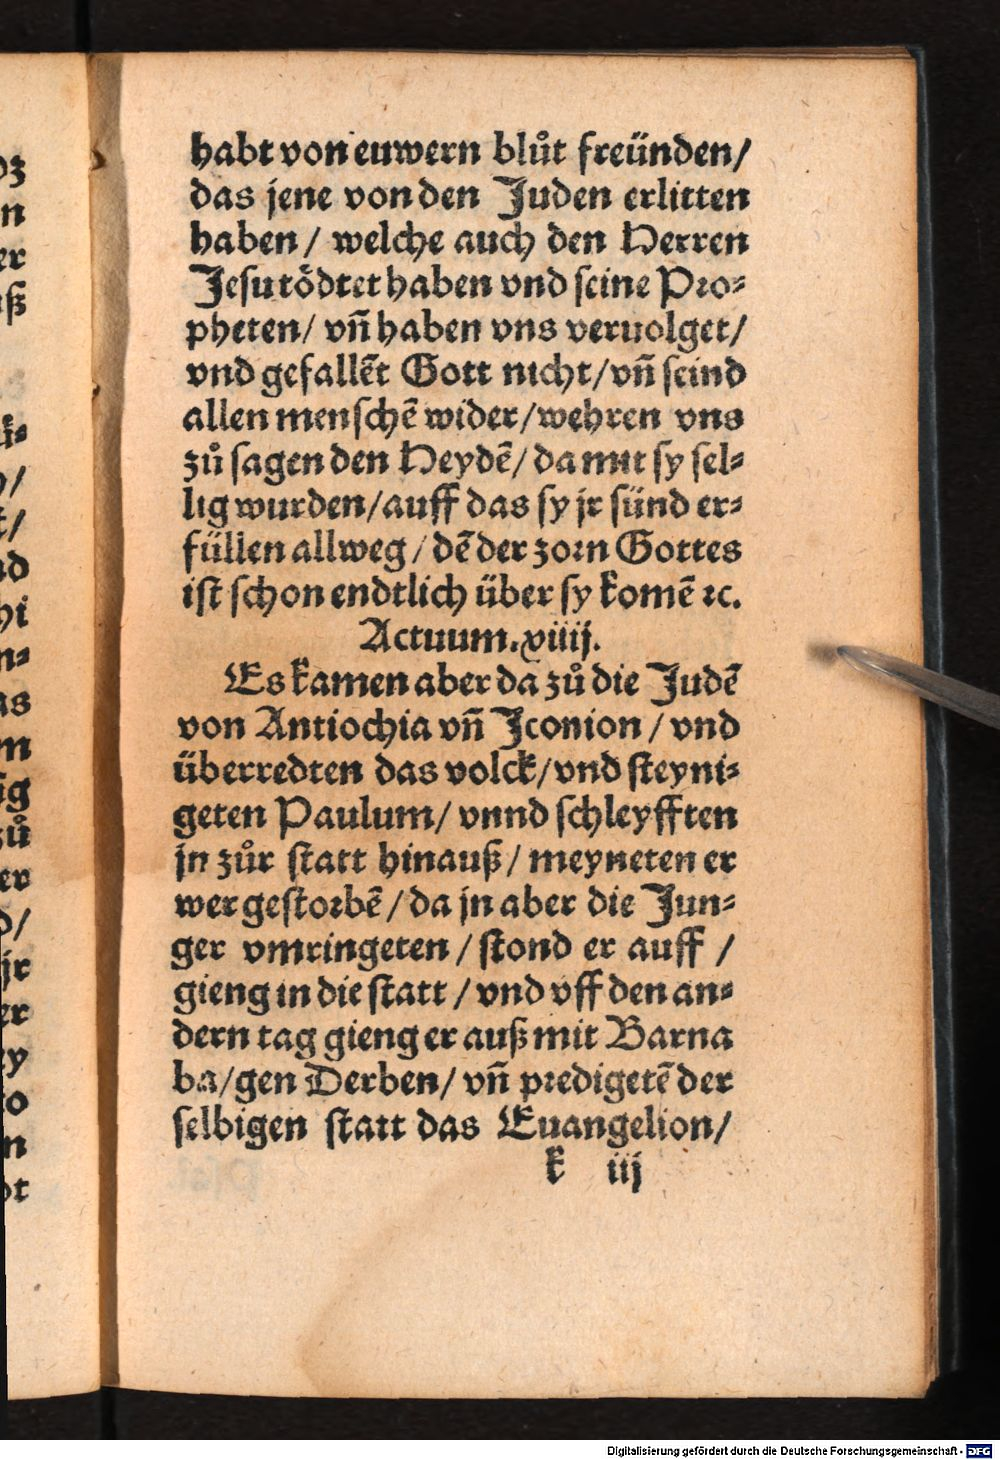 habt von euwern blůt freünden/
das jene von den Juden erlitten
haben/ welche auch den Herren
Jesu tödtet haben vnd seine Pro-
pheten/ vñ haben vns veruolget/
vnd gefallẽt Gott nicht/ vñ seind
allen menschẽ wider/ wehren vns
zů sagen den Heydẽ/ da mit sy sel-
lig wurden/ auff das sy jr sünd er-
füllen allweg/ dẽ der zorn Gottes
ist schon endtlich über sy komẽ ꝛc.
Actuum. xiiij.
Es kamen aber da zů die Judẽ
von Antiochia vñ Iconion/ vnd
überredten das volck/ vnd steyni-
geten Paulum/ vnnd schleyfften
jn zůr statt hinauß/ meyneten er
wer gestorbẽ/ da jn aber die Jun-
ger vmringeten/ stond er auff/
gieng in die statt/ vnd vff den an-
dern tag gieng er auß mit Barna
ba/ gen Derben/ vñ predigetẽ der
selbigen statt das Euangelion/
k iij
Digitalisierung gefördert durch die Deutsche Forschungsgemeinschaft - DFG